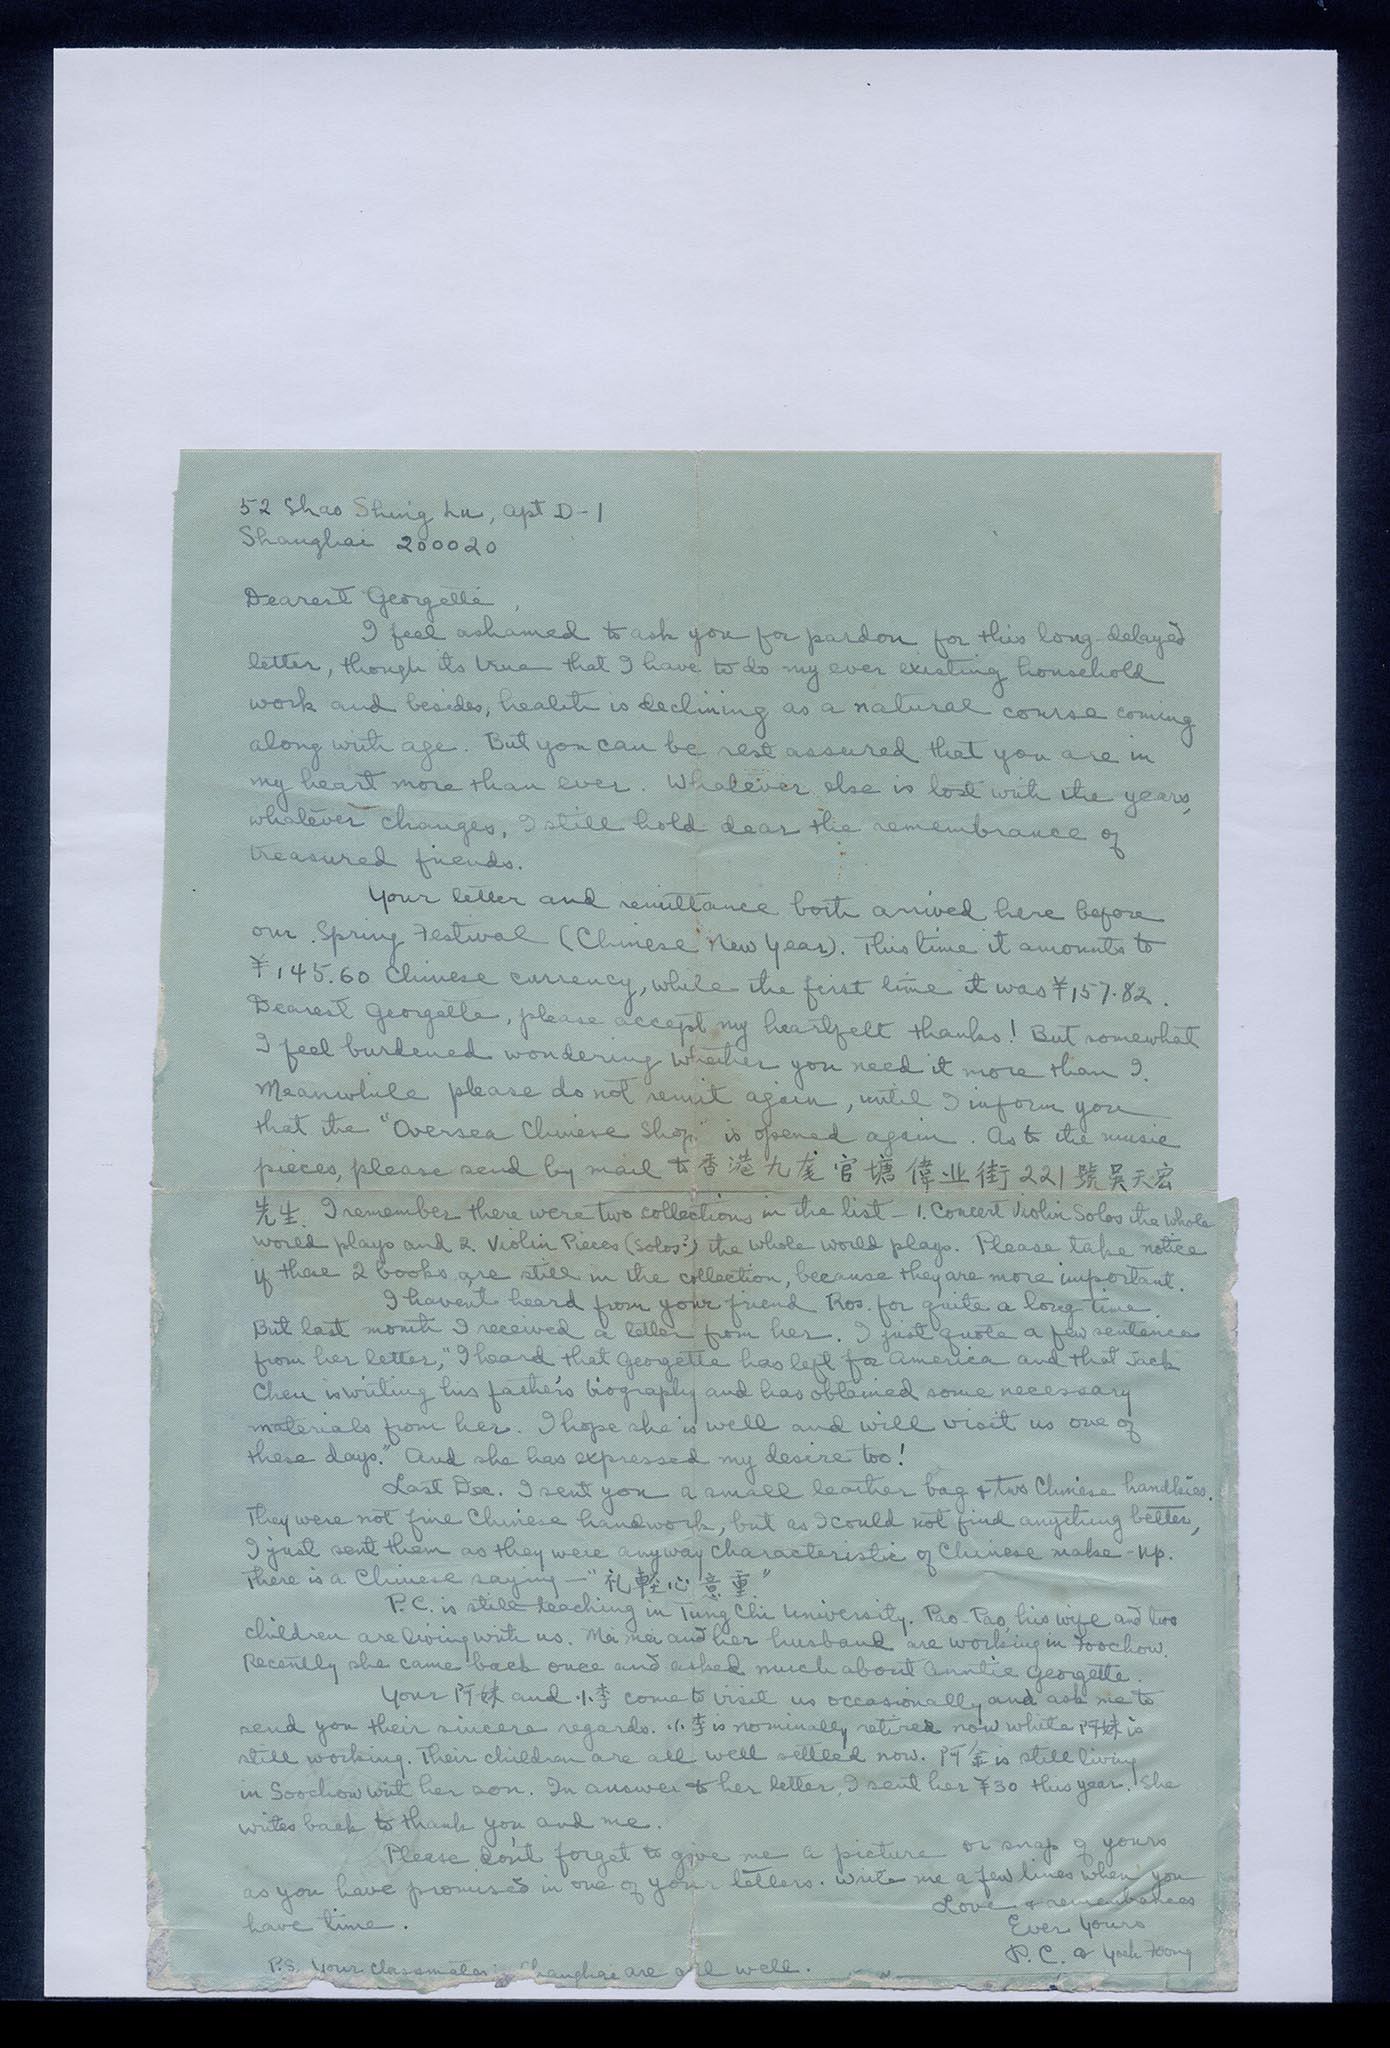 52 Shao Shing Lu, Apt D-1
Shanghai 200020
Dearest Georgette,
I feel ashamed to ask you for pardon for this long-delayed
letter, though its true that I have to do my ever existing household
work and besides, health is declining as a natural course coming
along with age. But you can be rest assured that you are in
my heart more than ever. Whatever else is lost with the years,
whatever changes, I still hold dear the remembrance of
treasured friends.
Your letter and remittance both arrived here before
our Spring Festival (Chinese New Year). This time it amounts to
¥145.60 Chinese currency, while the first time it was ¥157.82.
Dearest Georgette, please accept my heartfelt thanks! But somewhat
I feel burdened wondering whether you need it more than I.
Meanwhile please do not remit again, until I inform you
that the "Oversea Chinese Shop" is opened again. As to the music
pieces, please send by mail to 香港九龙官塘偉业街221號吴天宏
先生. I remember there were two collections in the list - 1. Concert Violin Solos the whole
world plays and 2. Violin Pieces (Solos?) the whole world plays. Please take notice
if these 2 books are still in the collection, because they are more important.
I haven't heard from your friend Ros. for quite a long time.
But last month I received a letter from her. I just quote a few sentences
from her letter, "I heard that Georgette has left for America and that Jack
Chen is writing his father's biography and has obtained some necessary
materials from her. I hope she is well and will visit us one of
these days." And she has expressed my desire too!
Last Dec. I sent you a small leather bag & two Chinese handkies.
They were not fine Chinese handwork, but as I could not find anything better,
I just sent them as they were anyway characteristic of Chinese make-up.
There is a Chinese saying - "礼輕心意重"
P.C. is still teaching in Tung Chi University. Pao-Pao, his wife and two
children are living with us. Mei mei and her husband are working in Foochow.
Recently she came back once and asked much about Anntie Georgette.
Your 阿妹 and 小李 come to visit us occasionally and ask me to
send you their sincere regards. 小李 is nominally retired now while 阿妹 is
still working. Their children are all well settled now. 阿金 is still living
in Soochow with her son. In answer to her letter, I sent her ¥30 this year. She
writes back to thank you and me.
Please don't forget to give me a picture or snap of yours
as you have promised in one of your letters. Write me a few lines when you
have time.
Love & remembrances
Ever Yours
P.C. & Yoeh Foong
P.S. Your classmates in Shanghai are all well.